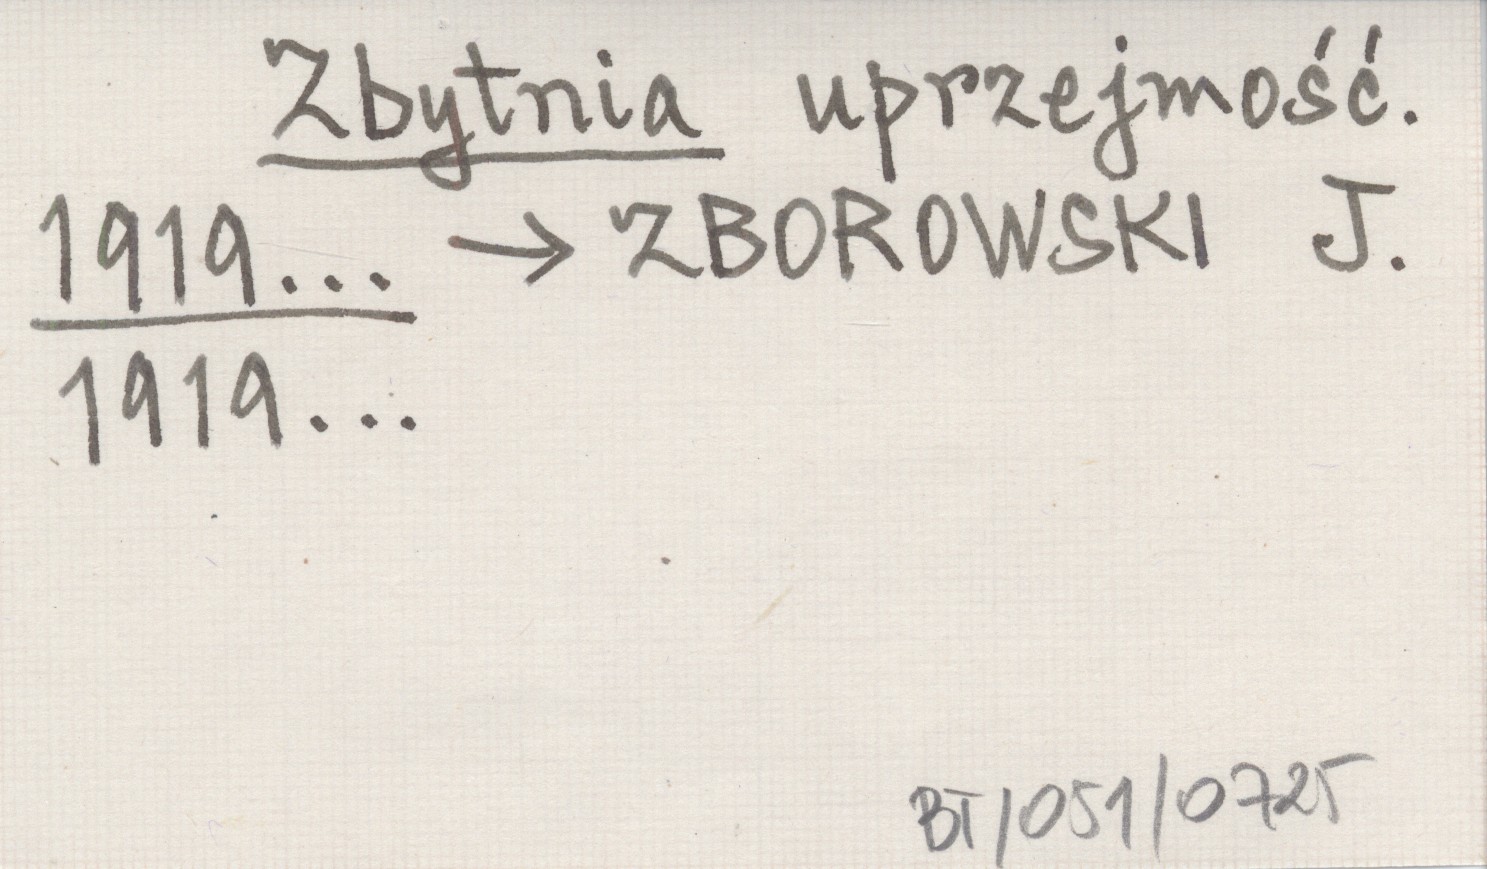 Zbytnia uprzejmość.
1919... → ZBOROWSKI J.
1919...
BT/051/0725